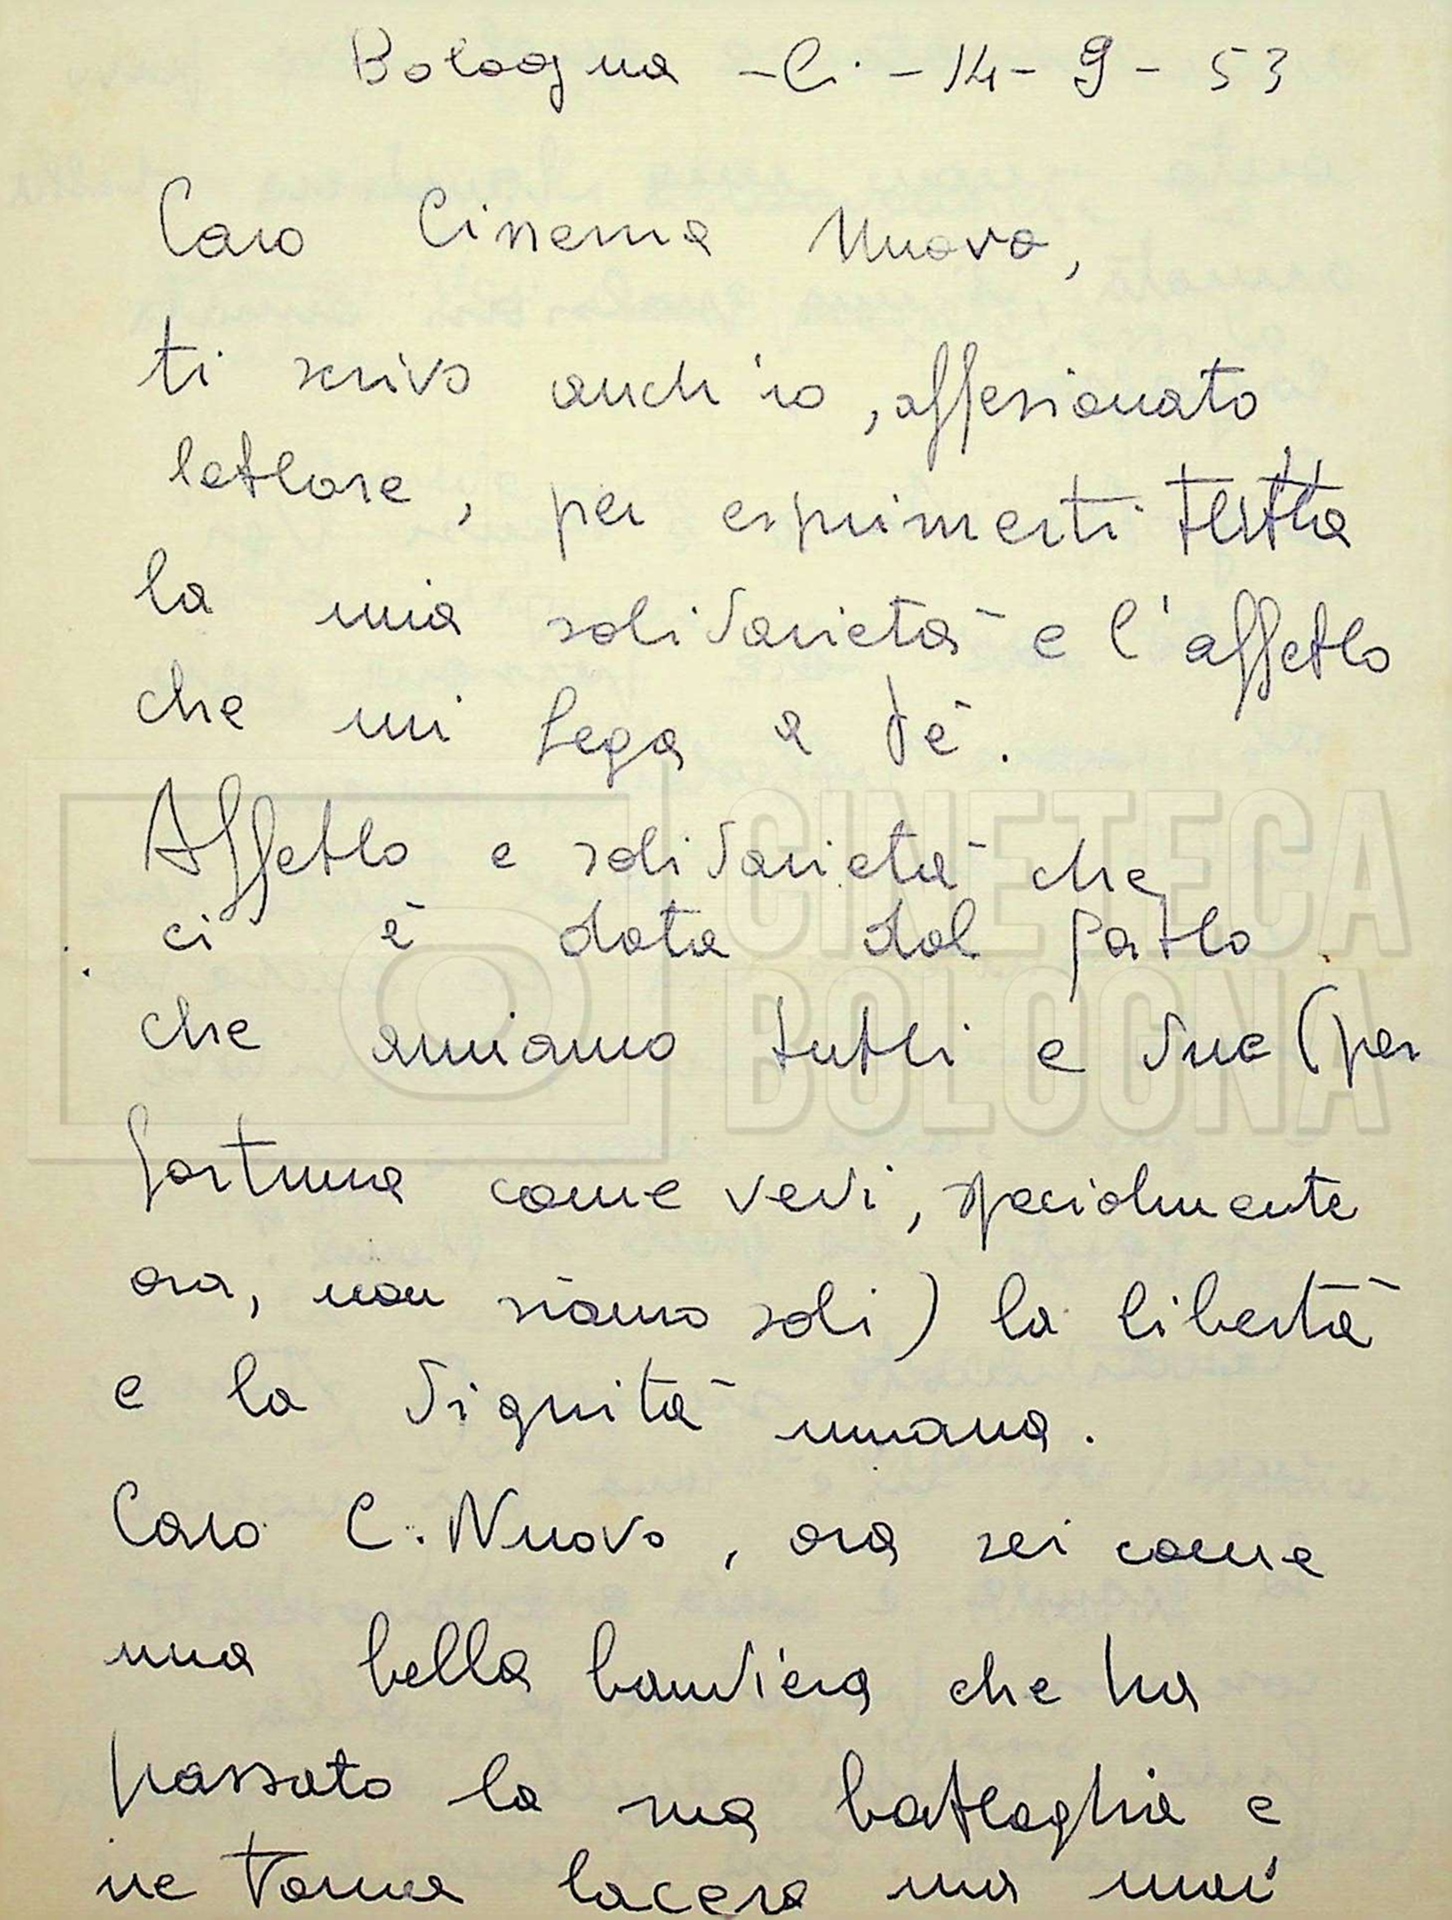 Bologna - li - 14 - 9 - 53
Caro Cinema Nuovo,
ti scrivo anch'io, affesionato
lettore, per esprimerti tutta
la mia solidarietà e l'affetto
che mi lega a tè.
Affetto e solidarietà che
ci è data dal fatto
che amiamo tutti e due (per
fortuna come vedi, specialmente
ora, non siamo soli) la libertà
e la dignità umana.
Caro C. Nuovo, ora sei come
una bella bandiera che ha
passato la sua battaglia e
ne torna lacera ma mai
CINETECA
BOLOGNA